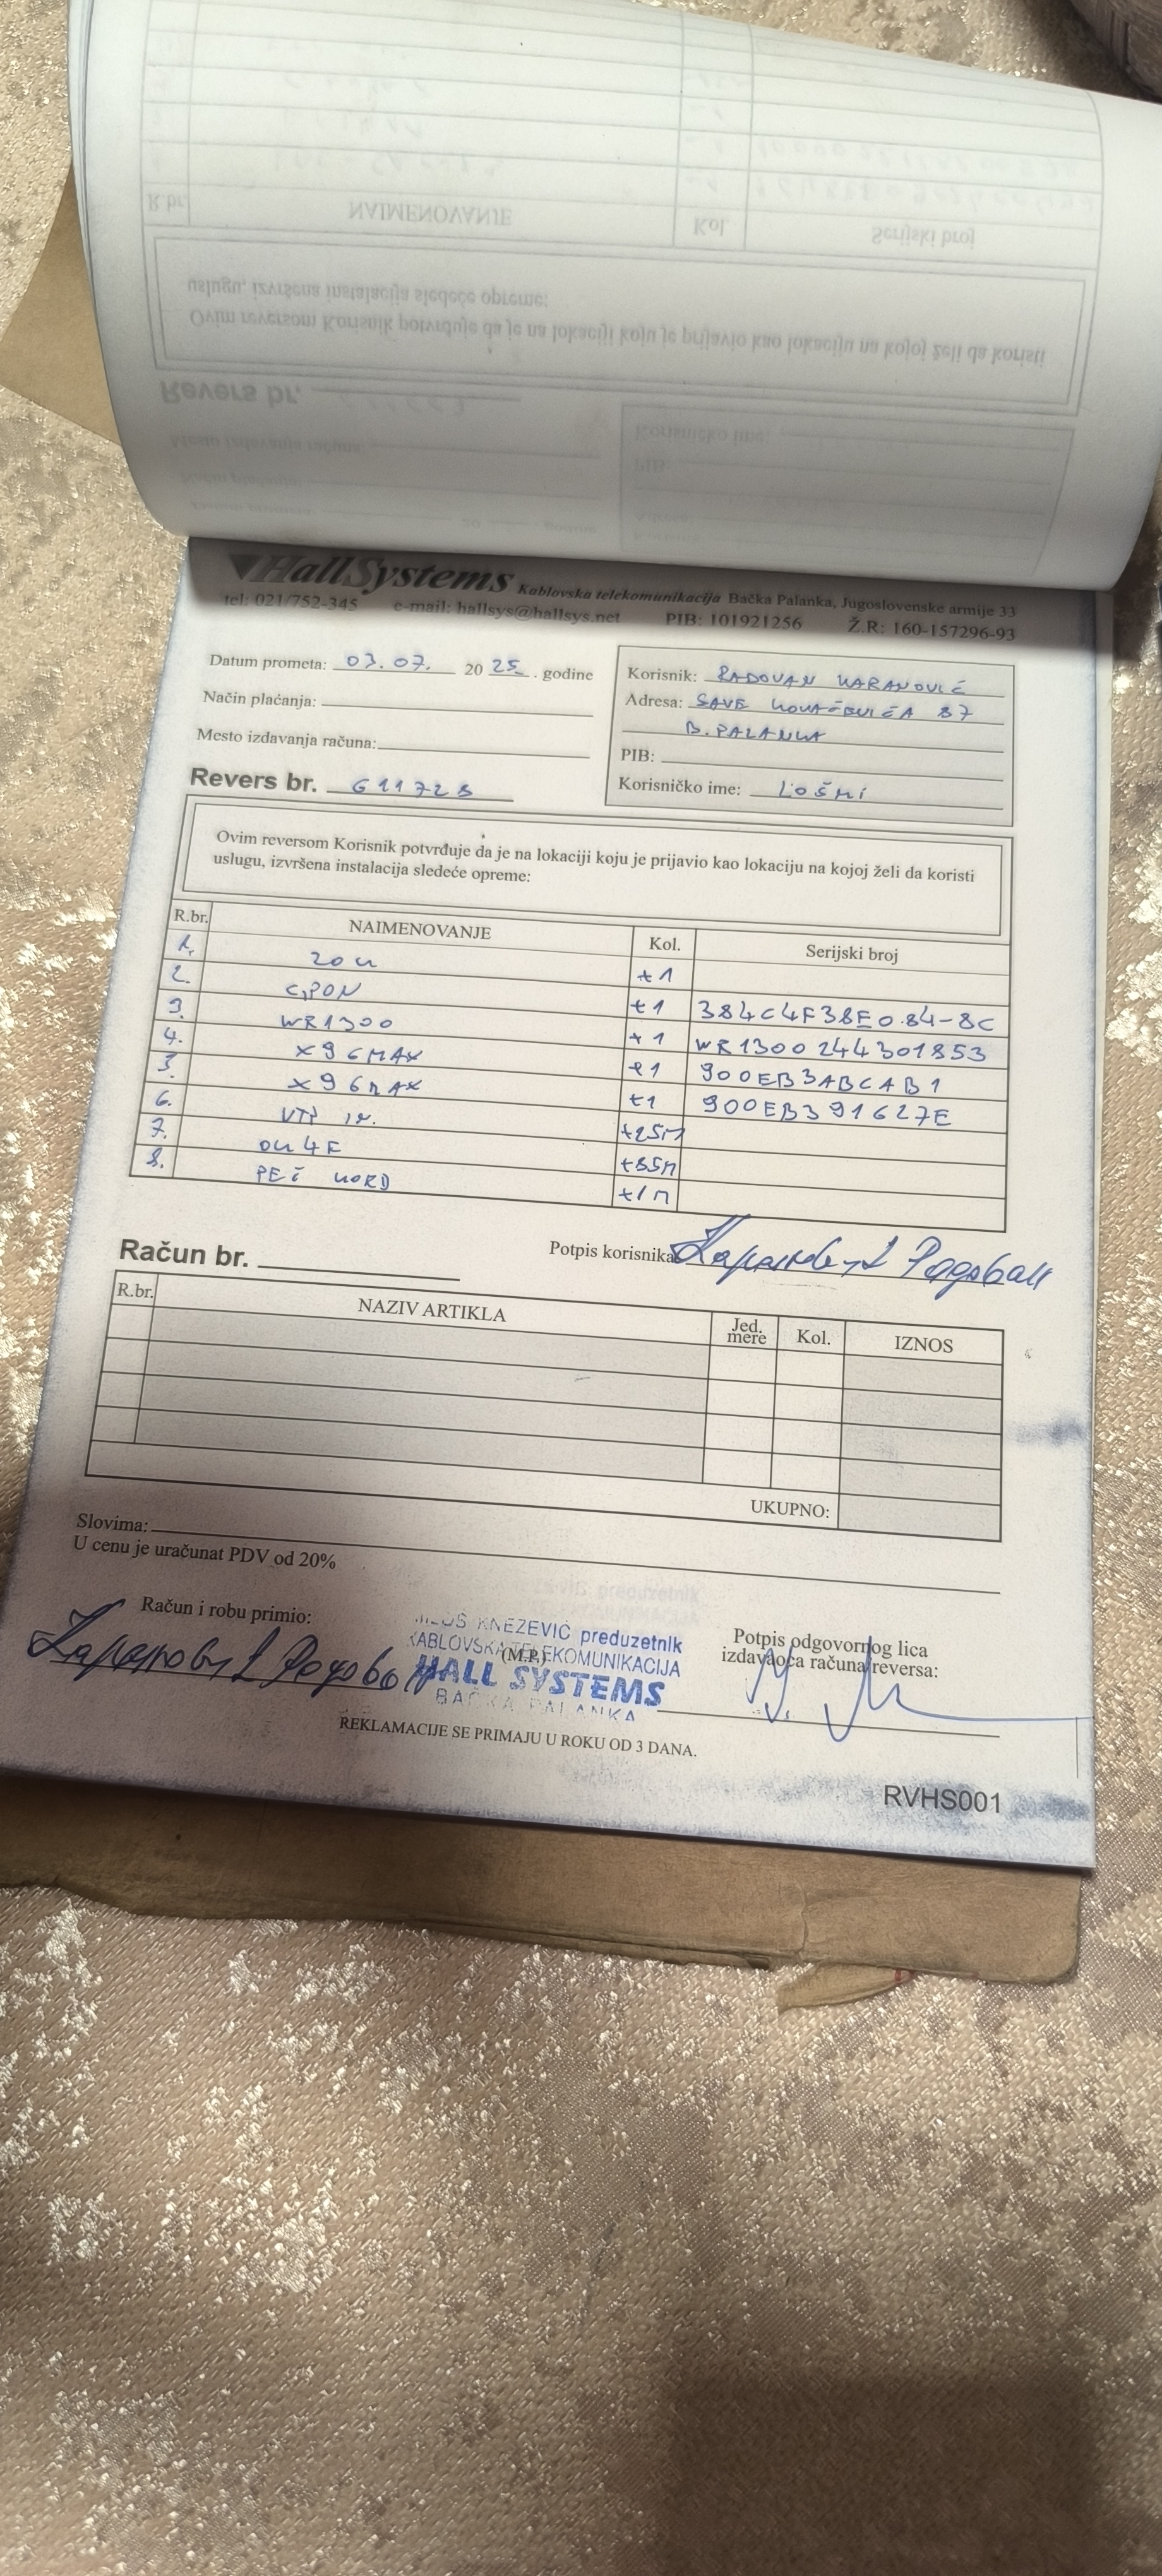 HallSystems Kablovska telekomunikacija Bačka Palanka, Jugoslovenske armije 33
tel: 021/752-345 e-mail: hallsys@hallsys.net PIB: 101921256 Ž.R: 160-157296-93
Datum prometa: 03.07. 2025. godine
Način plaćanja:
Mesto izdavanja računa:
Revers br. 611728
Korisnik: RADOVAN KARANOVIĆ
Adresa: SAVE KOVAČEVIĆA 87
B. PALANKA
PIB:
Korisničko ime: LOŠMI
Ovim reversom Korisnik potvrđuje da je na lokaciji koju je prijavio kao lokaciju na kojoj želi da koristi
uslugu, izvršena instalacija sledeće opreme:
R.br. NAIMENOVANJE Kol. Serijski broj
1. ZOK +1
2. GPON +1 384C4F38E084-8C
3. WR1300 +1 WR1300244301853
4. X96MAX +1 900EB3ABCAB1
5. X96MAX +1 900EB391627E
6. UTP +25M
7. OK 4F +85M
8. PEČ KORD +1M
Potpis korisnika Карановић Радован
Račun br.
R.br. NAZIV ARTIKLA Jed. mere Kol. IZNOS
UKUPNO:
Slovima:
U cenu je uračunat PDV od 20%
Račun i robu primio:
Карановић Радован
MILOŠ KNEŽEVIĆ preduzetnik
KABLOVSKA TELEKOMUNIKACIJA
(M.P.)
HALL SYSTEMS
BAČKA PALANKA
Potpis odgovornog lica
izdavaoca računa/reversa:
REKLAMACIJE SE PRIMAJU U ROKU OD 3 DANA.
RVHS001